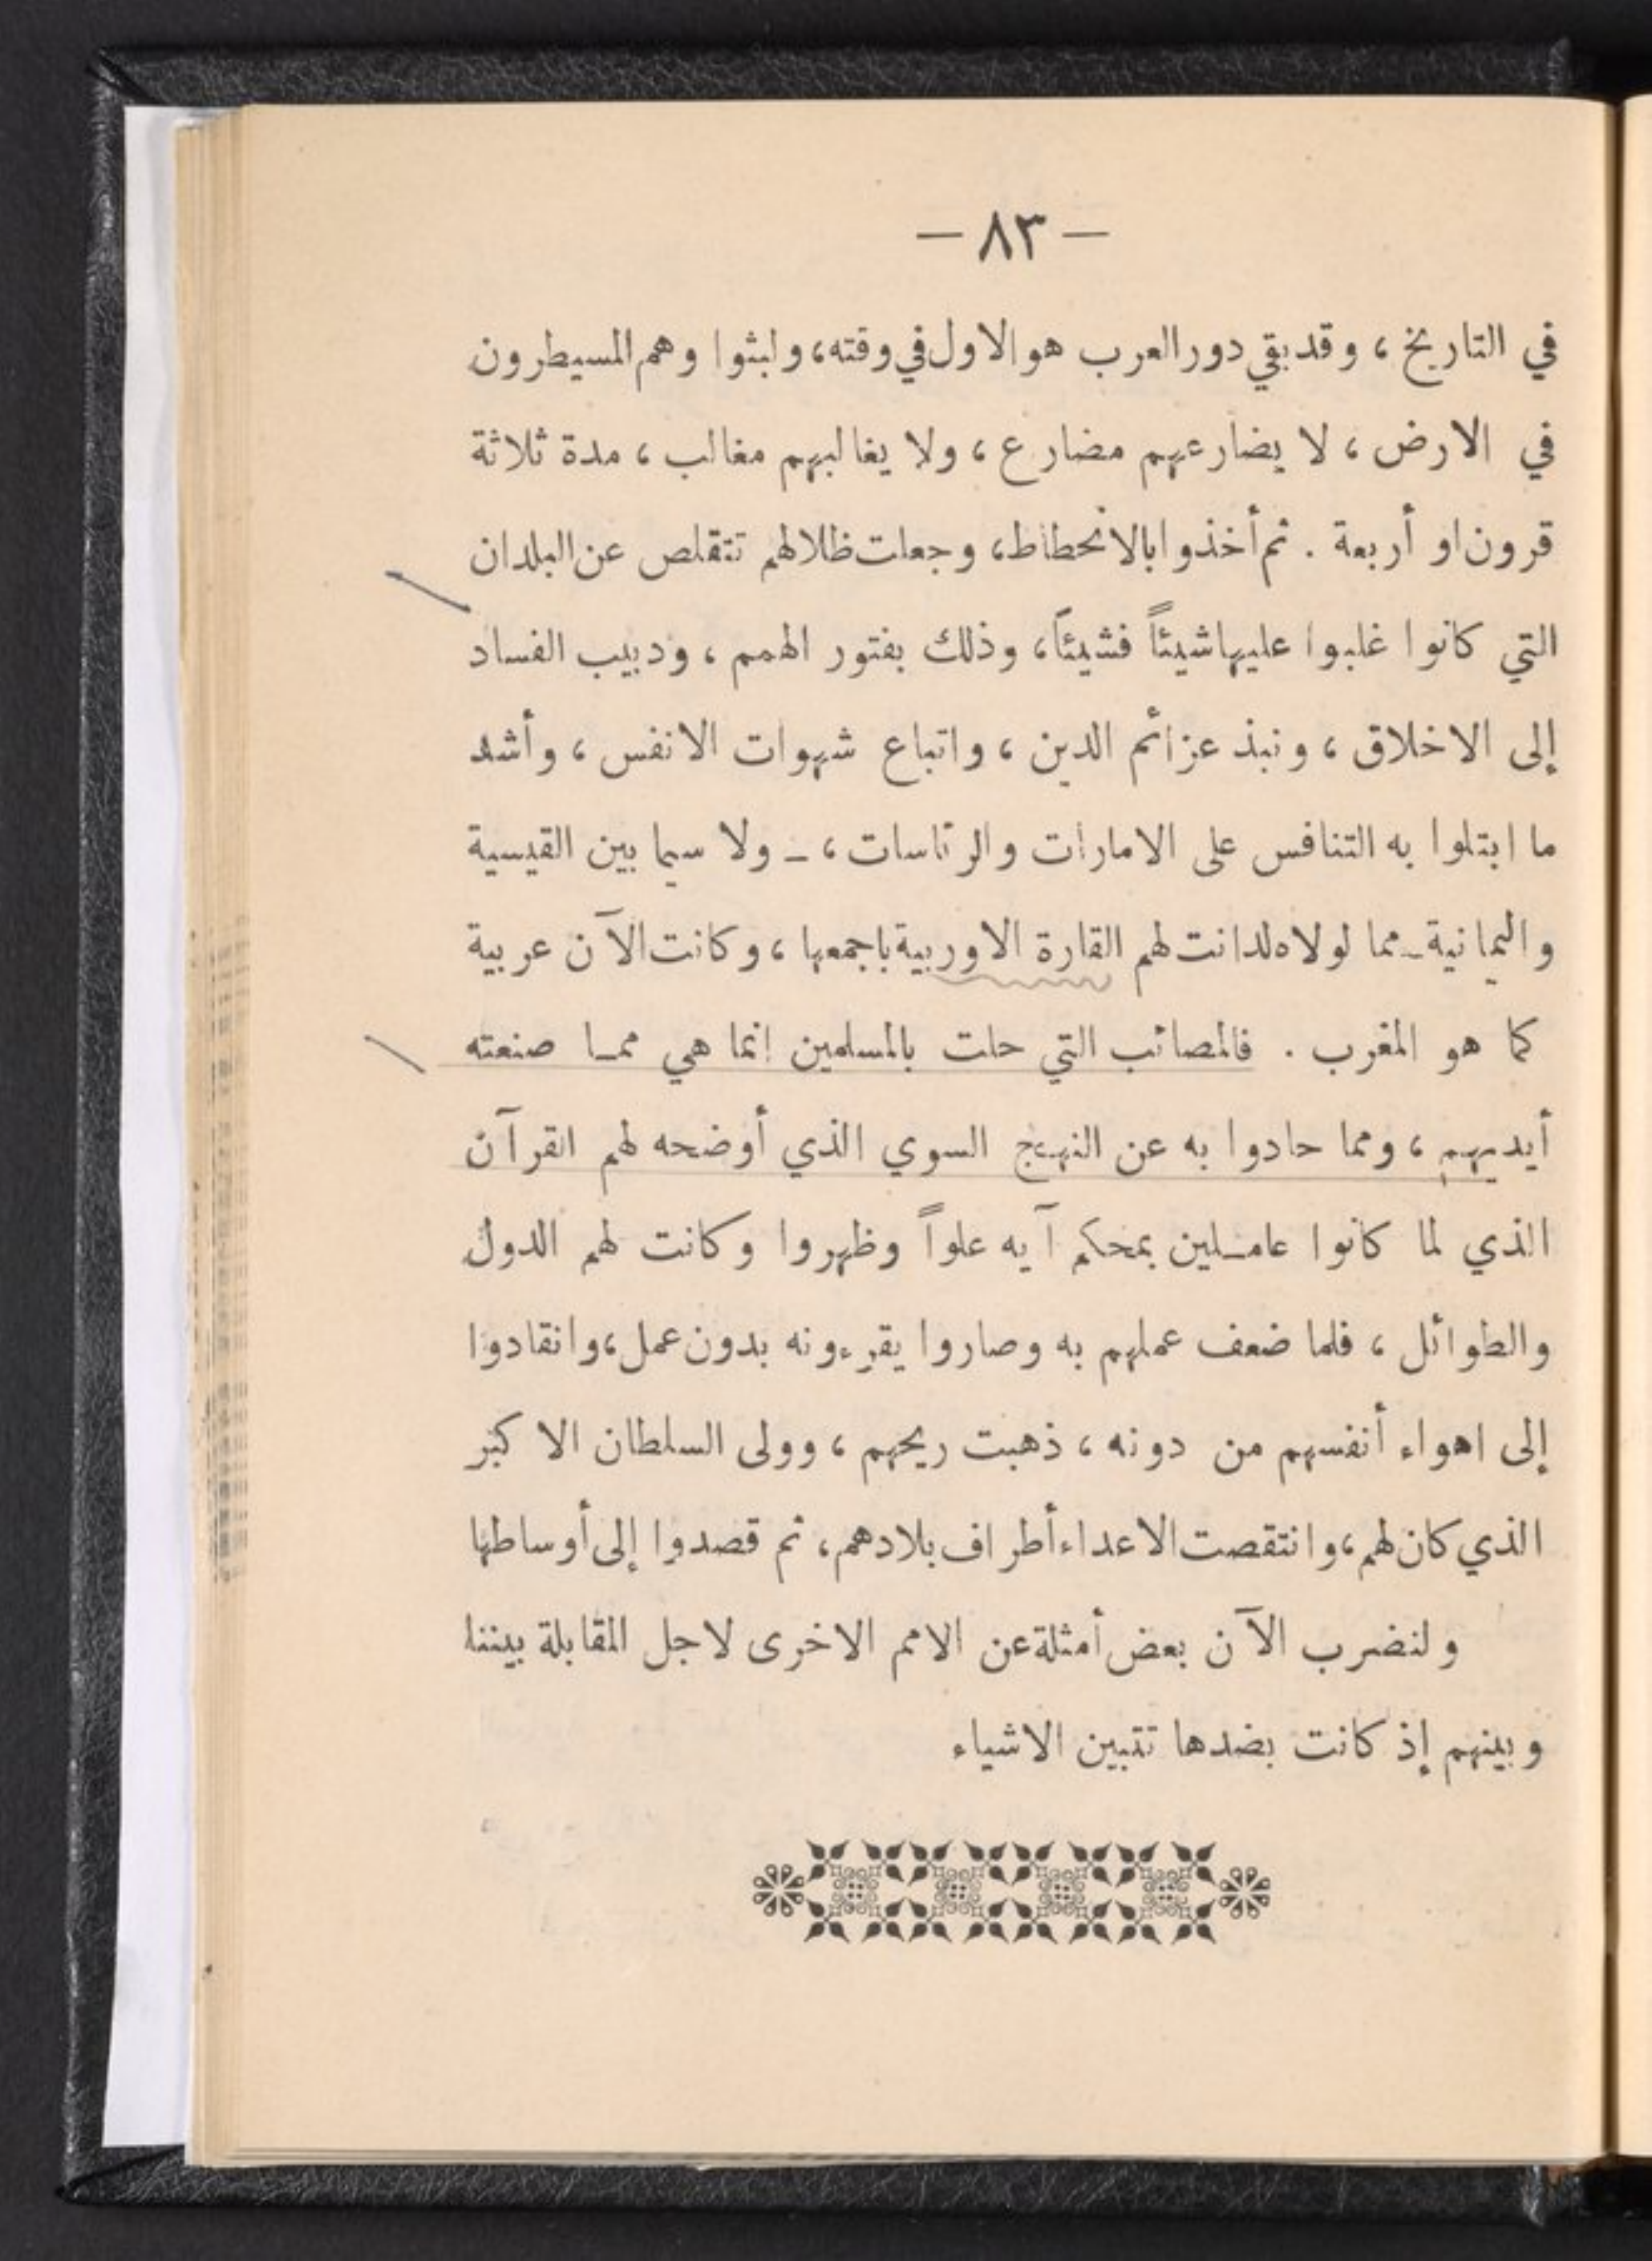 — ٨٣ —
في التاريخ ، وقد بقي دور العرب هو الاول في وقته، ولبثوا وهم المسيطرون
في الارض ، لا يضارعهم مضارع ، ولا يغالبهم مغالب ، مدة ثلاثة
قرون او أربعة . ثم أخذوا بالانحطاط، وجعلت ظلالهم تتقلص عن البلدان
التي كانوا غلبوا عليها شيئاً فشيئاً، وذلك بفتور الهمم ، ودبيب الفساد
إلى الاخلاق ، ونبذ عزائم الدين ، واتباع شهوات الانفس ، وأشد
ما ابتلوا به التنافس على الامارات والرئاسات ، – ولا سيما بين القيسية
واليمانية – مما لولاه لدانت لهم القارة الاوربية باجمعها ، وكانت الآن عربية
كما هو المغرب . فالمصائب التي حلت بالمسلمين إنما هي ممـا صنعته
أيديهم ، ومما حادوا به عن النهج السوي الذي أوضحه لهم القرآن
الذي لما كانوا عامـلين بمحكم آيه علواً وظهروا وكانت لهم الدول
والطوائل ، فلما ضعف عملهم به وصاروا يقرءونه بدون عمل ، وانقادوا
إلى اهواء أنفسهم من دونه ، ذهبت ريحهم ، وولى السلطان الاكبر
الذي كان لهم ، وانتقصت الاعداء أطراف بلادهم ، ثم قصدوا إلى أوساطها
ولنضرب الآن بعض أمثلة عن الامم الاخرى لاجل المقابلة بيننا
وبينهم إذ كانت بضدها تتبين الاشياء